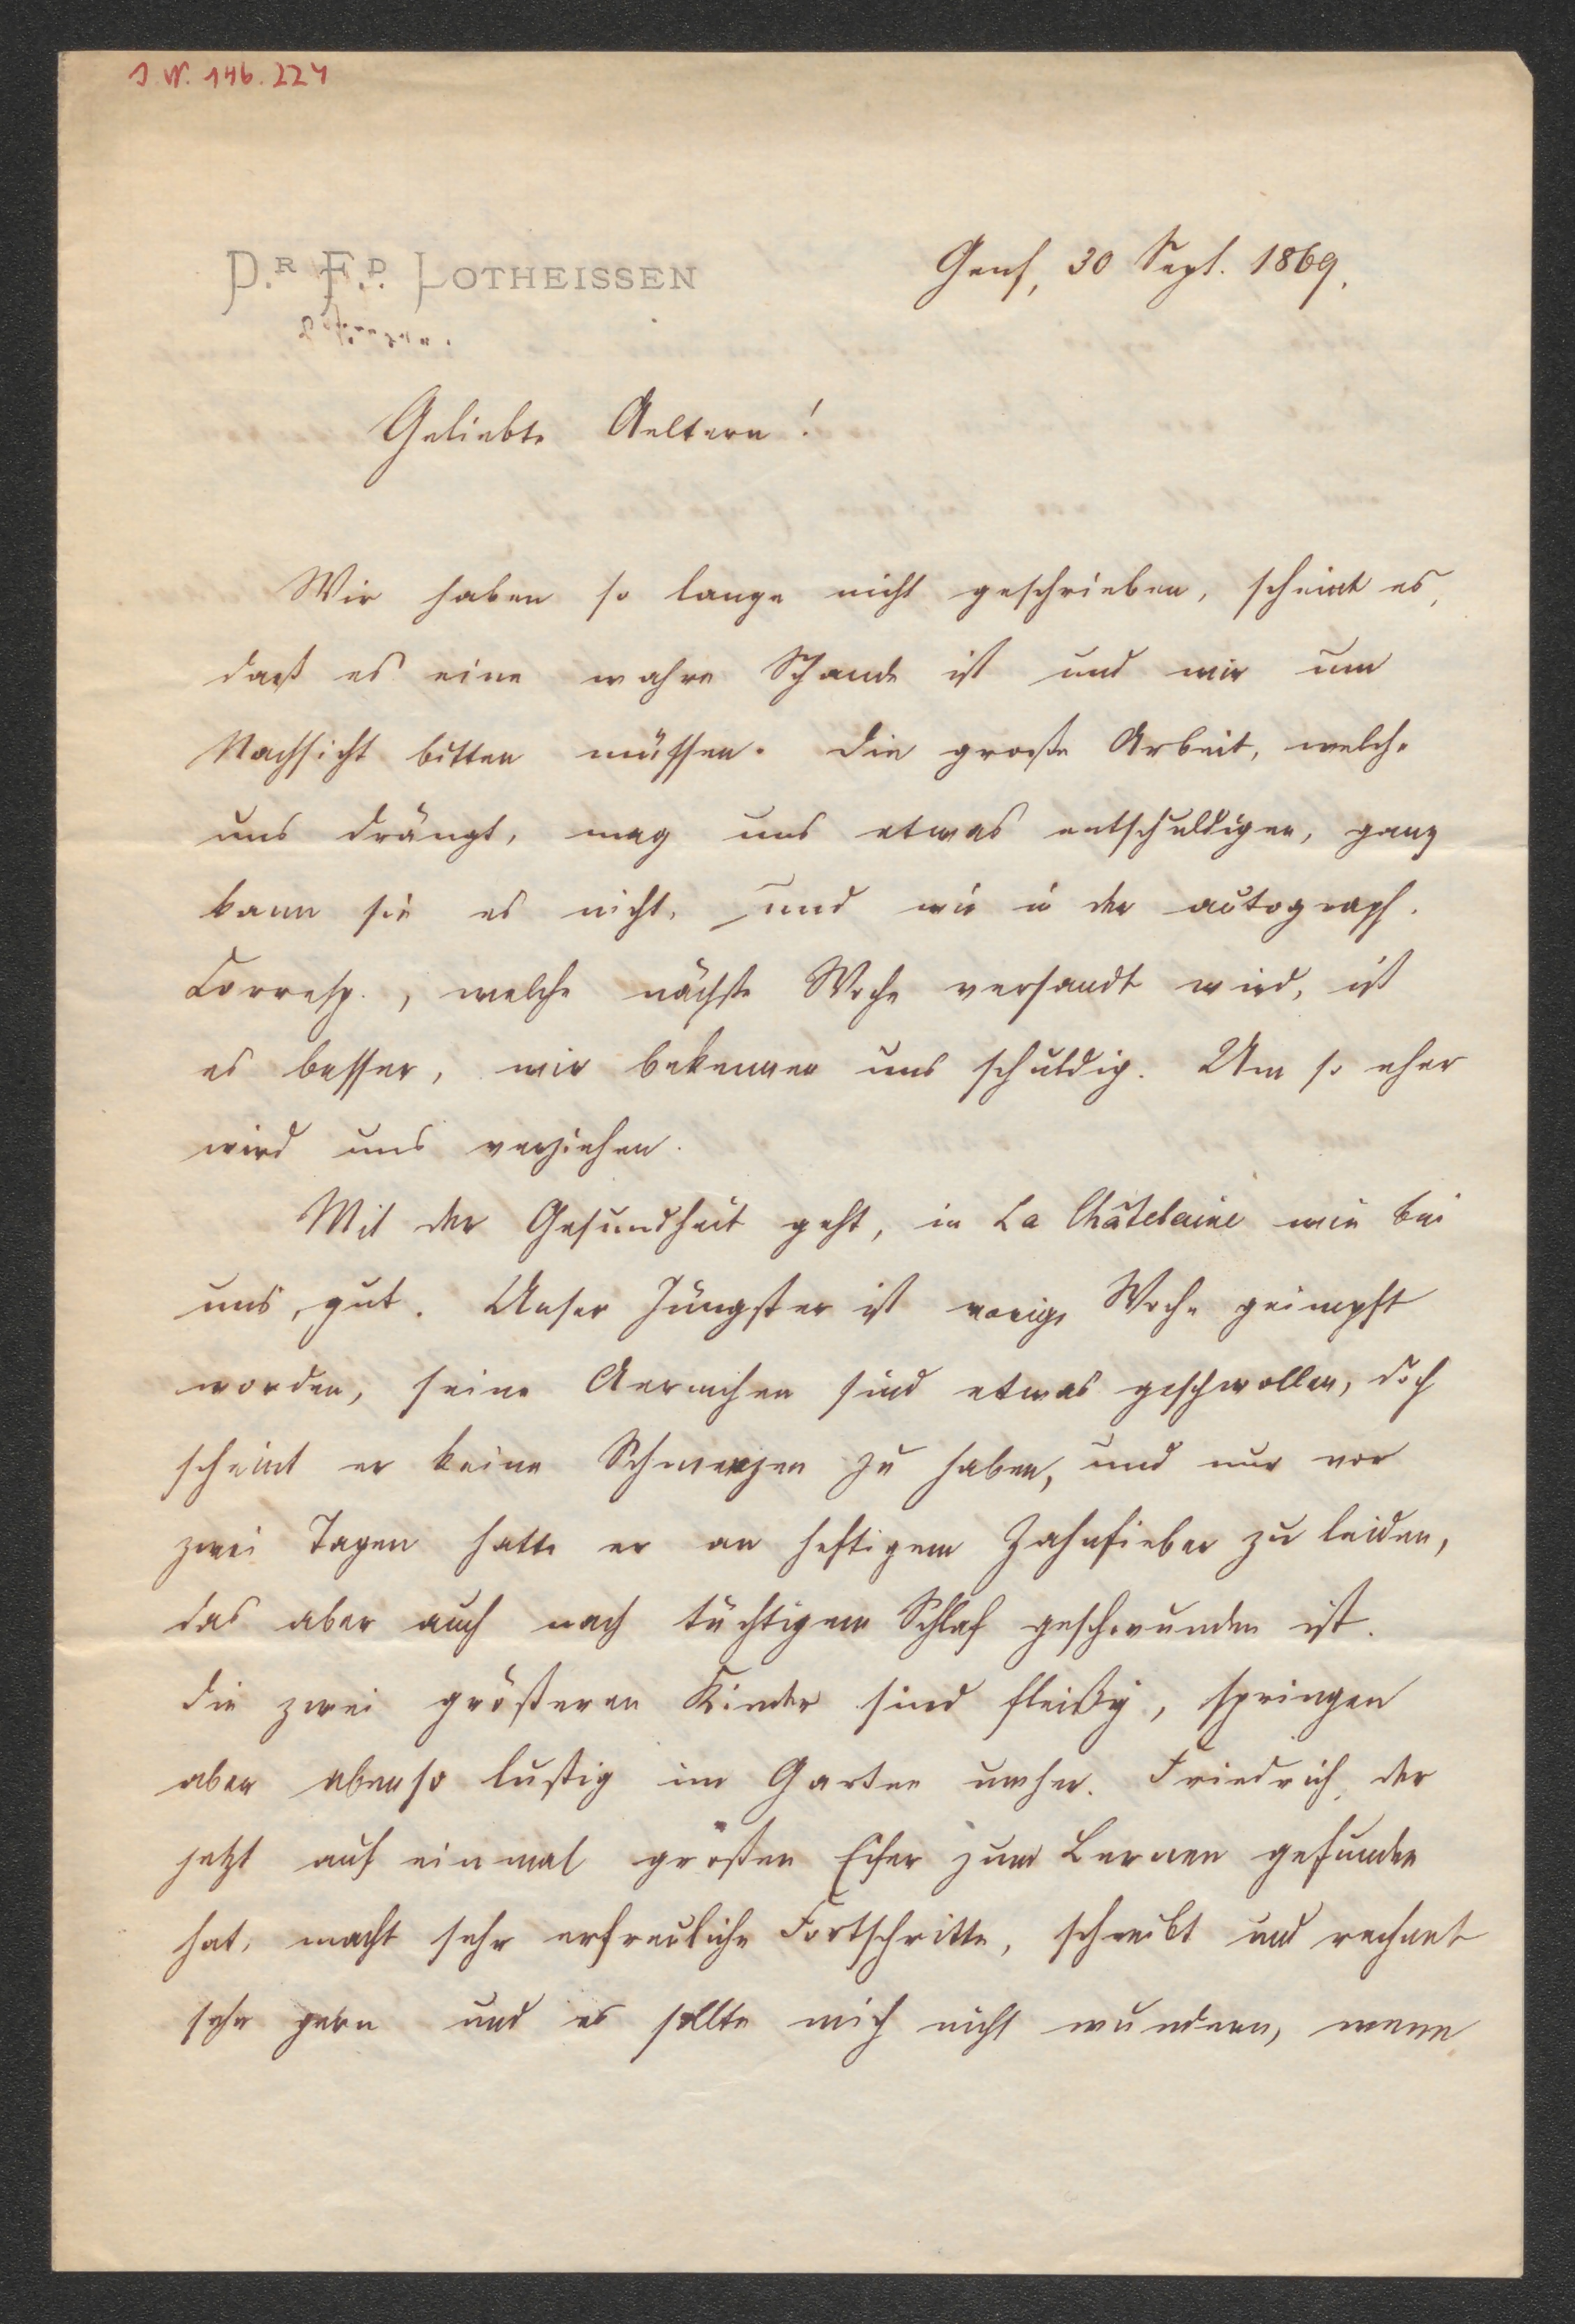 J. N. 146.224
DR. FD. LOTHEISSEN
Genf, 30 Sept. 1869.
Geliebte Aeltern!
Wir haben so lange nicht geschrieben, scheint es,
daß es eine wahre Schande ist und wir um
Nachsicht bitten müssen. Die große Arbeit, welche
uns drängt, mag uns etwas entschuldigen, ganz
kann sie es nicht, und wie in der autograph.
Corresp., welche nächste Woche versandt wird, ist
es besser, wir bekennen uns schuldig. Um so eher
wird uns verziehen.
Mit der Gesundheit geht, in La Châtelaine wie bei
uns, gut. Unser Jüngster ist vorige Woche geimpft
worden, seine Aermchen sind etwas geschwollen, doch
scheint er keine Schmerzen zu haben, und nur vor
zwei Tagen hatte er an heftigem Zahnfieber zu leiden,
das aber auch nach tüchtigem Schlaf geschwunden ist.
Die zwei größeren Kinder sind fleißig, springen
aber ebenso lustig im Garten umher. Friedrich, der
jetzt auf einmal großen Eifer zum Lernen gefunden
hat, macht sehr erfreuliche Fortschritte, schreibt und rechnet
sehr gern und es sollte mich nicht wundern, wenn